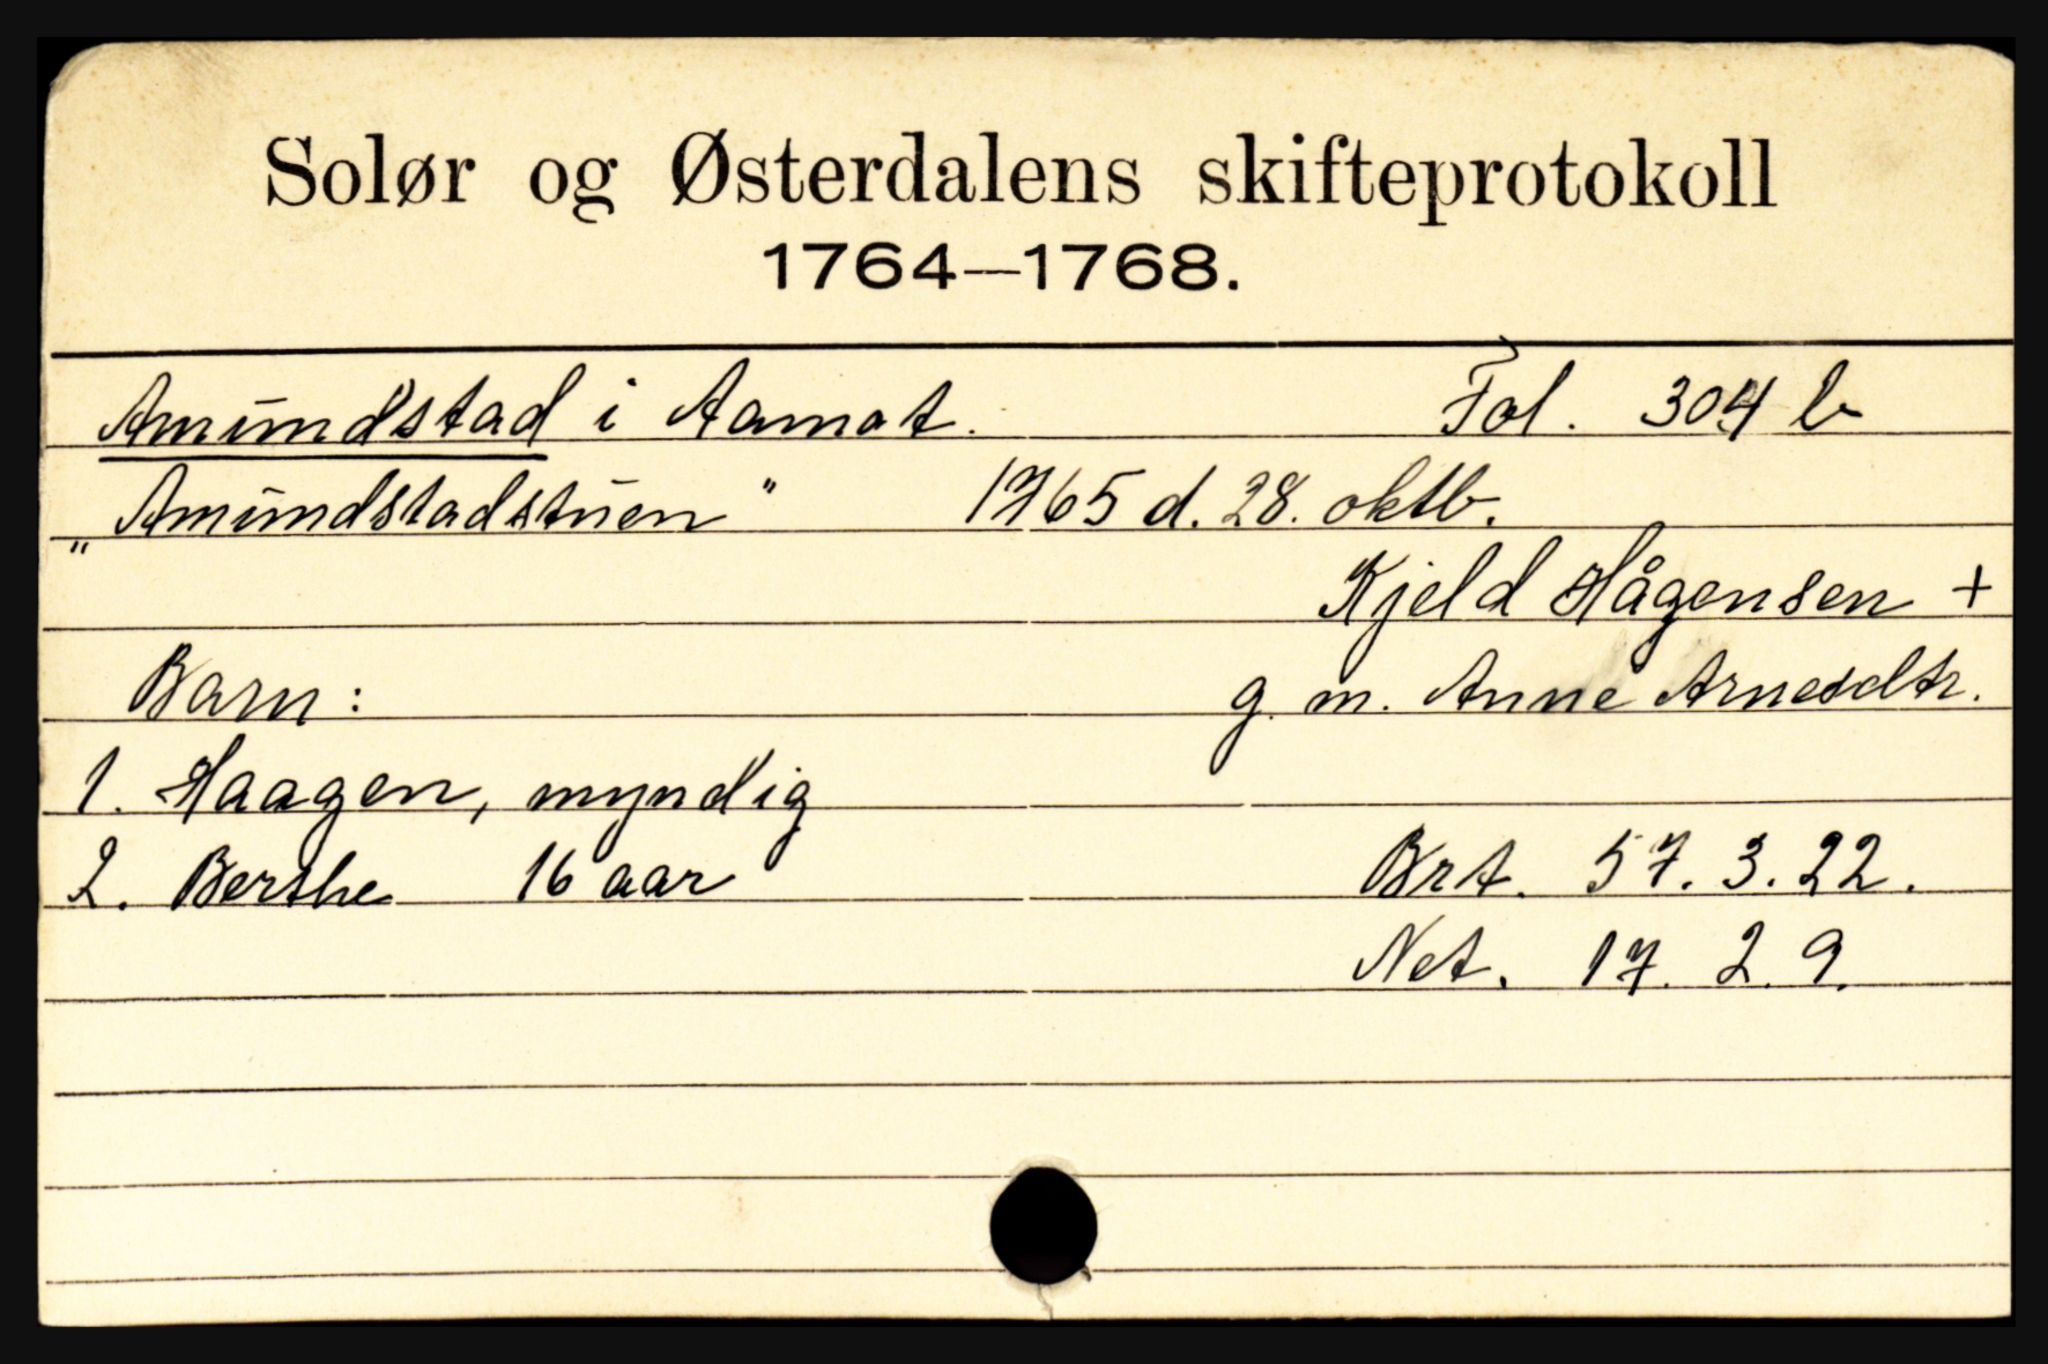 Solør og Østerdalens skifteprotokoll
1764—1768.
Amundstad i Aamot. Fol. 304 b
"Amundstadstuen" 1765 d. 28. oktb.
Kjeld Hågensen +
Barn: g. m. Anne Arnesdtr.
1. Haagen, myndig
2. Berthe 16 aar Brt. 57. 3. 22.
Net. 17. 2. 9.